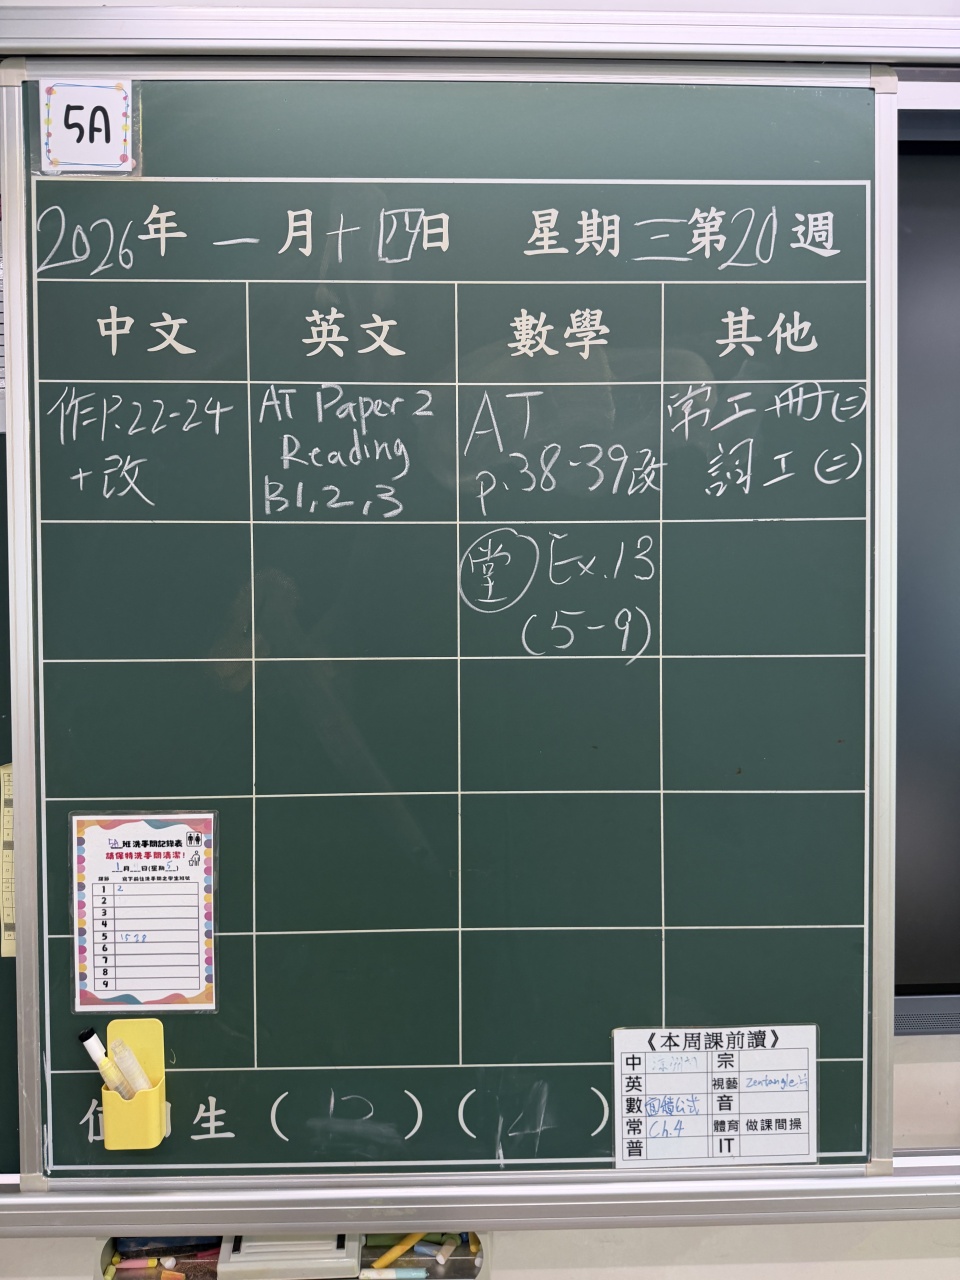 5A
2026年一月十四日 星期三第20週
中文 英文 數學 其他
作P.22-24
+改
AT Paper 2
Reading
B1,2,3
AT
p.38-39改
常工冊(二)
詞工(二)
堂 Ex.13
(5-9)
5A班洗手間記錄表
請保持洗手間清潔!
1月 日(星期5)
課節
1 2
2
3
4
5 15 28
6
7
8
9
生( )(14)
《本周課前讀》
中 宗
英 視藝 Zentangle
數 面積公式 音
常 Ch.4 體育 做課間操
普 IT